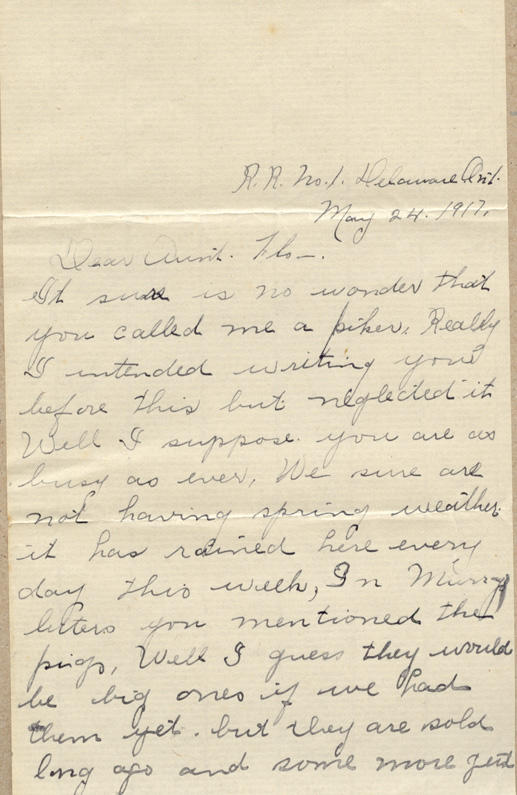 R.R. No. 1. Delaware Ont.
May 24. 1917.
Dear Aunt. Flo-.
It sure is no wonder that
you called me a piker. Really
I intended writing you
before this but neglected it
Well I suppose. you are as
busy as ever, We sure are
not having spring weather.
it has rained here every
day this week, In
letters you mentioned the
pigs, Well I guess they would
be big ones if we had
them yet. but they are sold
long ago and some more